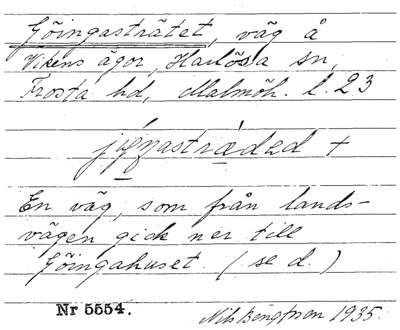 Göingasträtet, väg å
Vikens ägor, Harlösa sn,
Frosta hd, Malmöh. l. 23
En väg, som från lands-
vägen gick ner till
Göingahuset. (se d.)
Nr 5554.
Nils Bengtsson 1935.